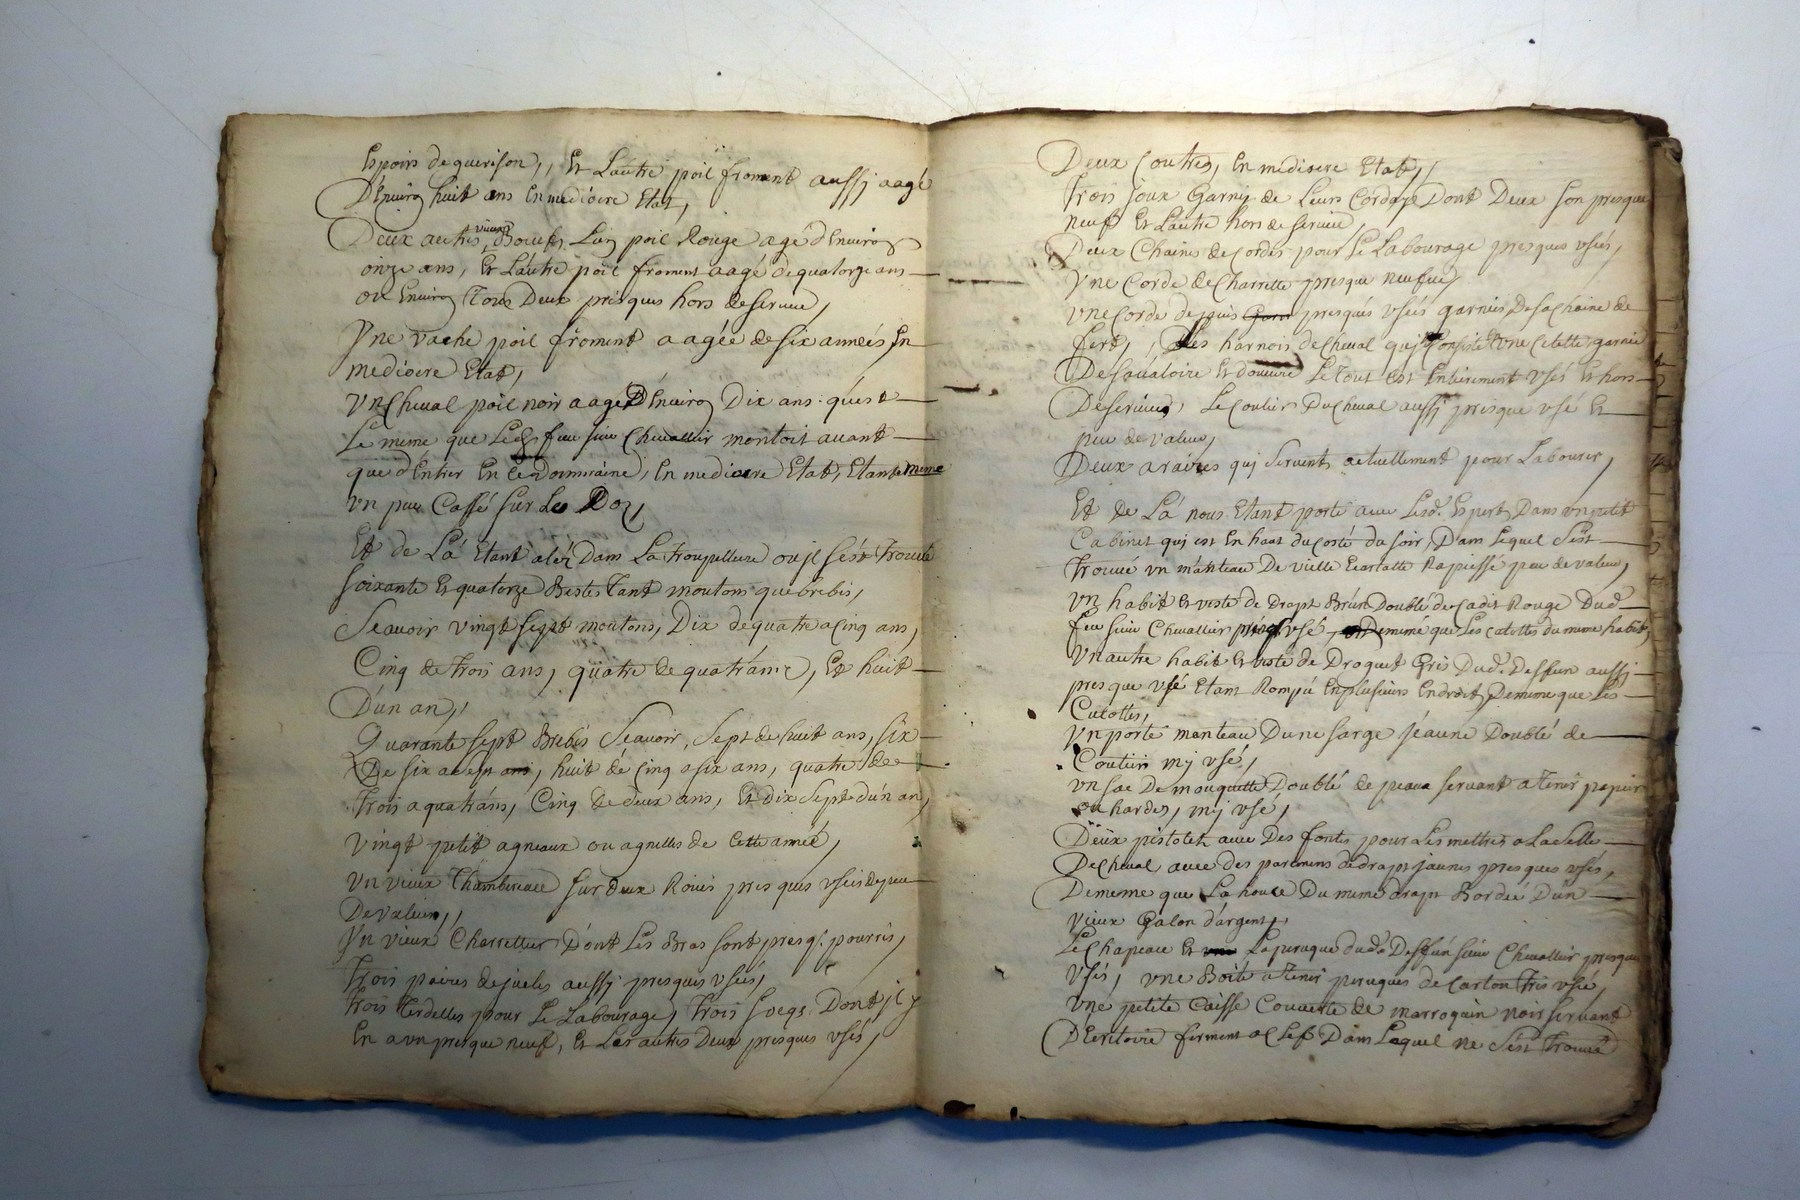 Espoirs de guerison,, Et Lautre poil froment aussj aagé
D'Enuiron huit ans En mediocre Etat,
Deux autres vieux Boeufs, Lun poil Rouge agé d'Enuiron
onze ans, Et Lautre poil froment aagé de quatorze ans
ou Enuiron Tous Deux presques hors de seruice,
Vne vache poil froment aagée de six années En
mediocre Etat,
Vn Cheual poil noir aagé D'Enuiron Dix ans quest
Le meme que Led. feu sieur Cheuallier montoit auant
que d'Entrer En Ced. dommaine, En mediocre Etat, Etant meme
vn peu Cassé sur Les Doz,
Et de La Etant aléz Dans La Troupelliere ou jl sest Trouué
soixante Et quatorze Bestes Tant moutons que brebis,
Scauoir vingt sept moutons, Dix de quatre a Cinq ans,
Cinq de Trois ans, quatre de quatrame, Et huit
D'un an,,
Quarante sept Brebis Scauoir, Sept de huit ans, six
De six a sept ans, huit de cinq a six ans, quatre de
Trois a quatr'ans, Cinq de deux ans, Et dix sept d'un an,
Vingt petit agneaux ou agnelles de Cette année,
Vn vieux Thambireau sur deux Roües presques vseis de peu
De valeur,,
Vn vieux Charrettier Dont Les Bras sont presq. pourris,
Trois paires de jueles aussj presques vseis,
Trois Tendelles pour Le Labourage, Trois soegs Dont jl y
En a vn presque neuf, Et Les autres Deux presques vsés,
Deux Coutres, En mediocre Etat,,
Trois Joux Garnis de Leurs Cordage Dont Deux son presque
neuf Et Lautre hors de seruice,
Deux Chaines de Cordes pour Le Labourage presques vsés,
Vne Corde de Charrette presque neufue,
Vne Corde de puis presqués vsés garnies De sa Chaine de
fert, Les harnois de Cheual quj Consiste Vne Celette garnie
De saualoire Et doucure Le Tout Est Entierement vsés Et hors
De seruice, Le Coulier Du Cheual aussj presque vsé Et
peu de valeur,
Deux araires quj seruent actuellement pour Labourer,
Et de La nous Etant porté auec Lesd. Experts Dans vn petit
Cabinet quj est En haut du Costé du soir, Dans Lequel Sest
Trouué vn manteau De vielle Ecarlatte Rapiessé peu de valeur,
Vn habit Et veste de Drapt Brun Doublé de Cadis Rouge Dud.
feu sieur Cheuallier presq. vsé Dememe que Les culottes du meme habit,
Vn autre habit Et veste de Droguet Gris Dud. Deffun aussj
presque vsé Etant Rompú En plusieurs Endroits Dememe que Les
Culottes,
Vn porte manteau D'une sarge jeaune Doublé de
Coutieis mj vsé,
Vn sac De mouquette Doublé de peaux seruant a Tenir papier
ou hardes, mj vsé,
Deux pistolets auec Des fontes pour Les mettres a La selle
De Cheual auec des paremens de drapt jaunes presques vsés,
Dememe que La house Du meme drapt Bordée D'un
vieux Galon d'argent,
Le Chapeau Et La peruque dud. Deffun sieur Cheuallier presque
Vsés, Vne Boité a Tenir peruques de Carton Tres vsée,
Vne petite Caisse Couuerte de marroquin noir seruant
D'Ecritoire ferment a Clef Dans Lequel ne Sest Trouué